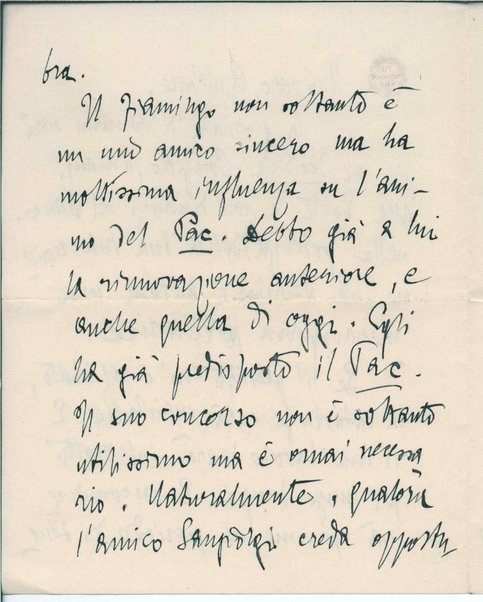 bra.
Il Fiamingo non soltanto è
un mio amico sincero ma ha
moltissima influenza su l'ani-
mo del Pac. Debbo già a lui
la rinnovazione anteriore, e
anche quella di oggi. Egli
ha già predisposto il Pac.
Il suo concorso non è soltanto
utilissimo ma è omai necessa
rio. Naturalmente, qualora
l'amico creda opportu